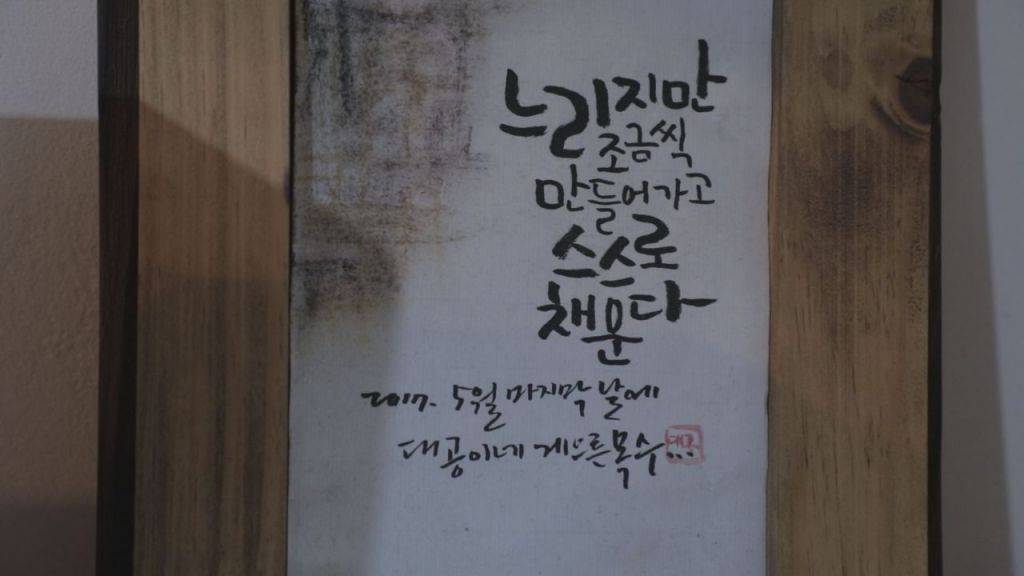 느리지만
조금씩
만들어가고
스스로
채운다
2017. 5월 마지막 날에
대공이네 게으른목수...